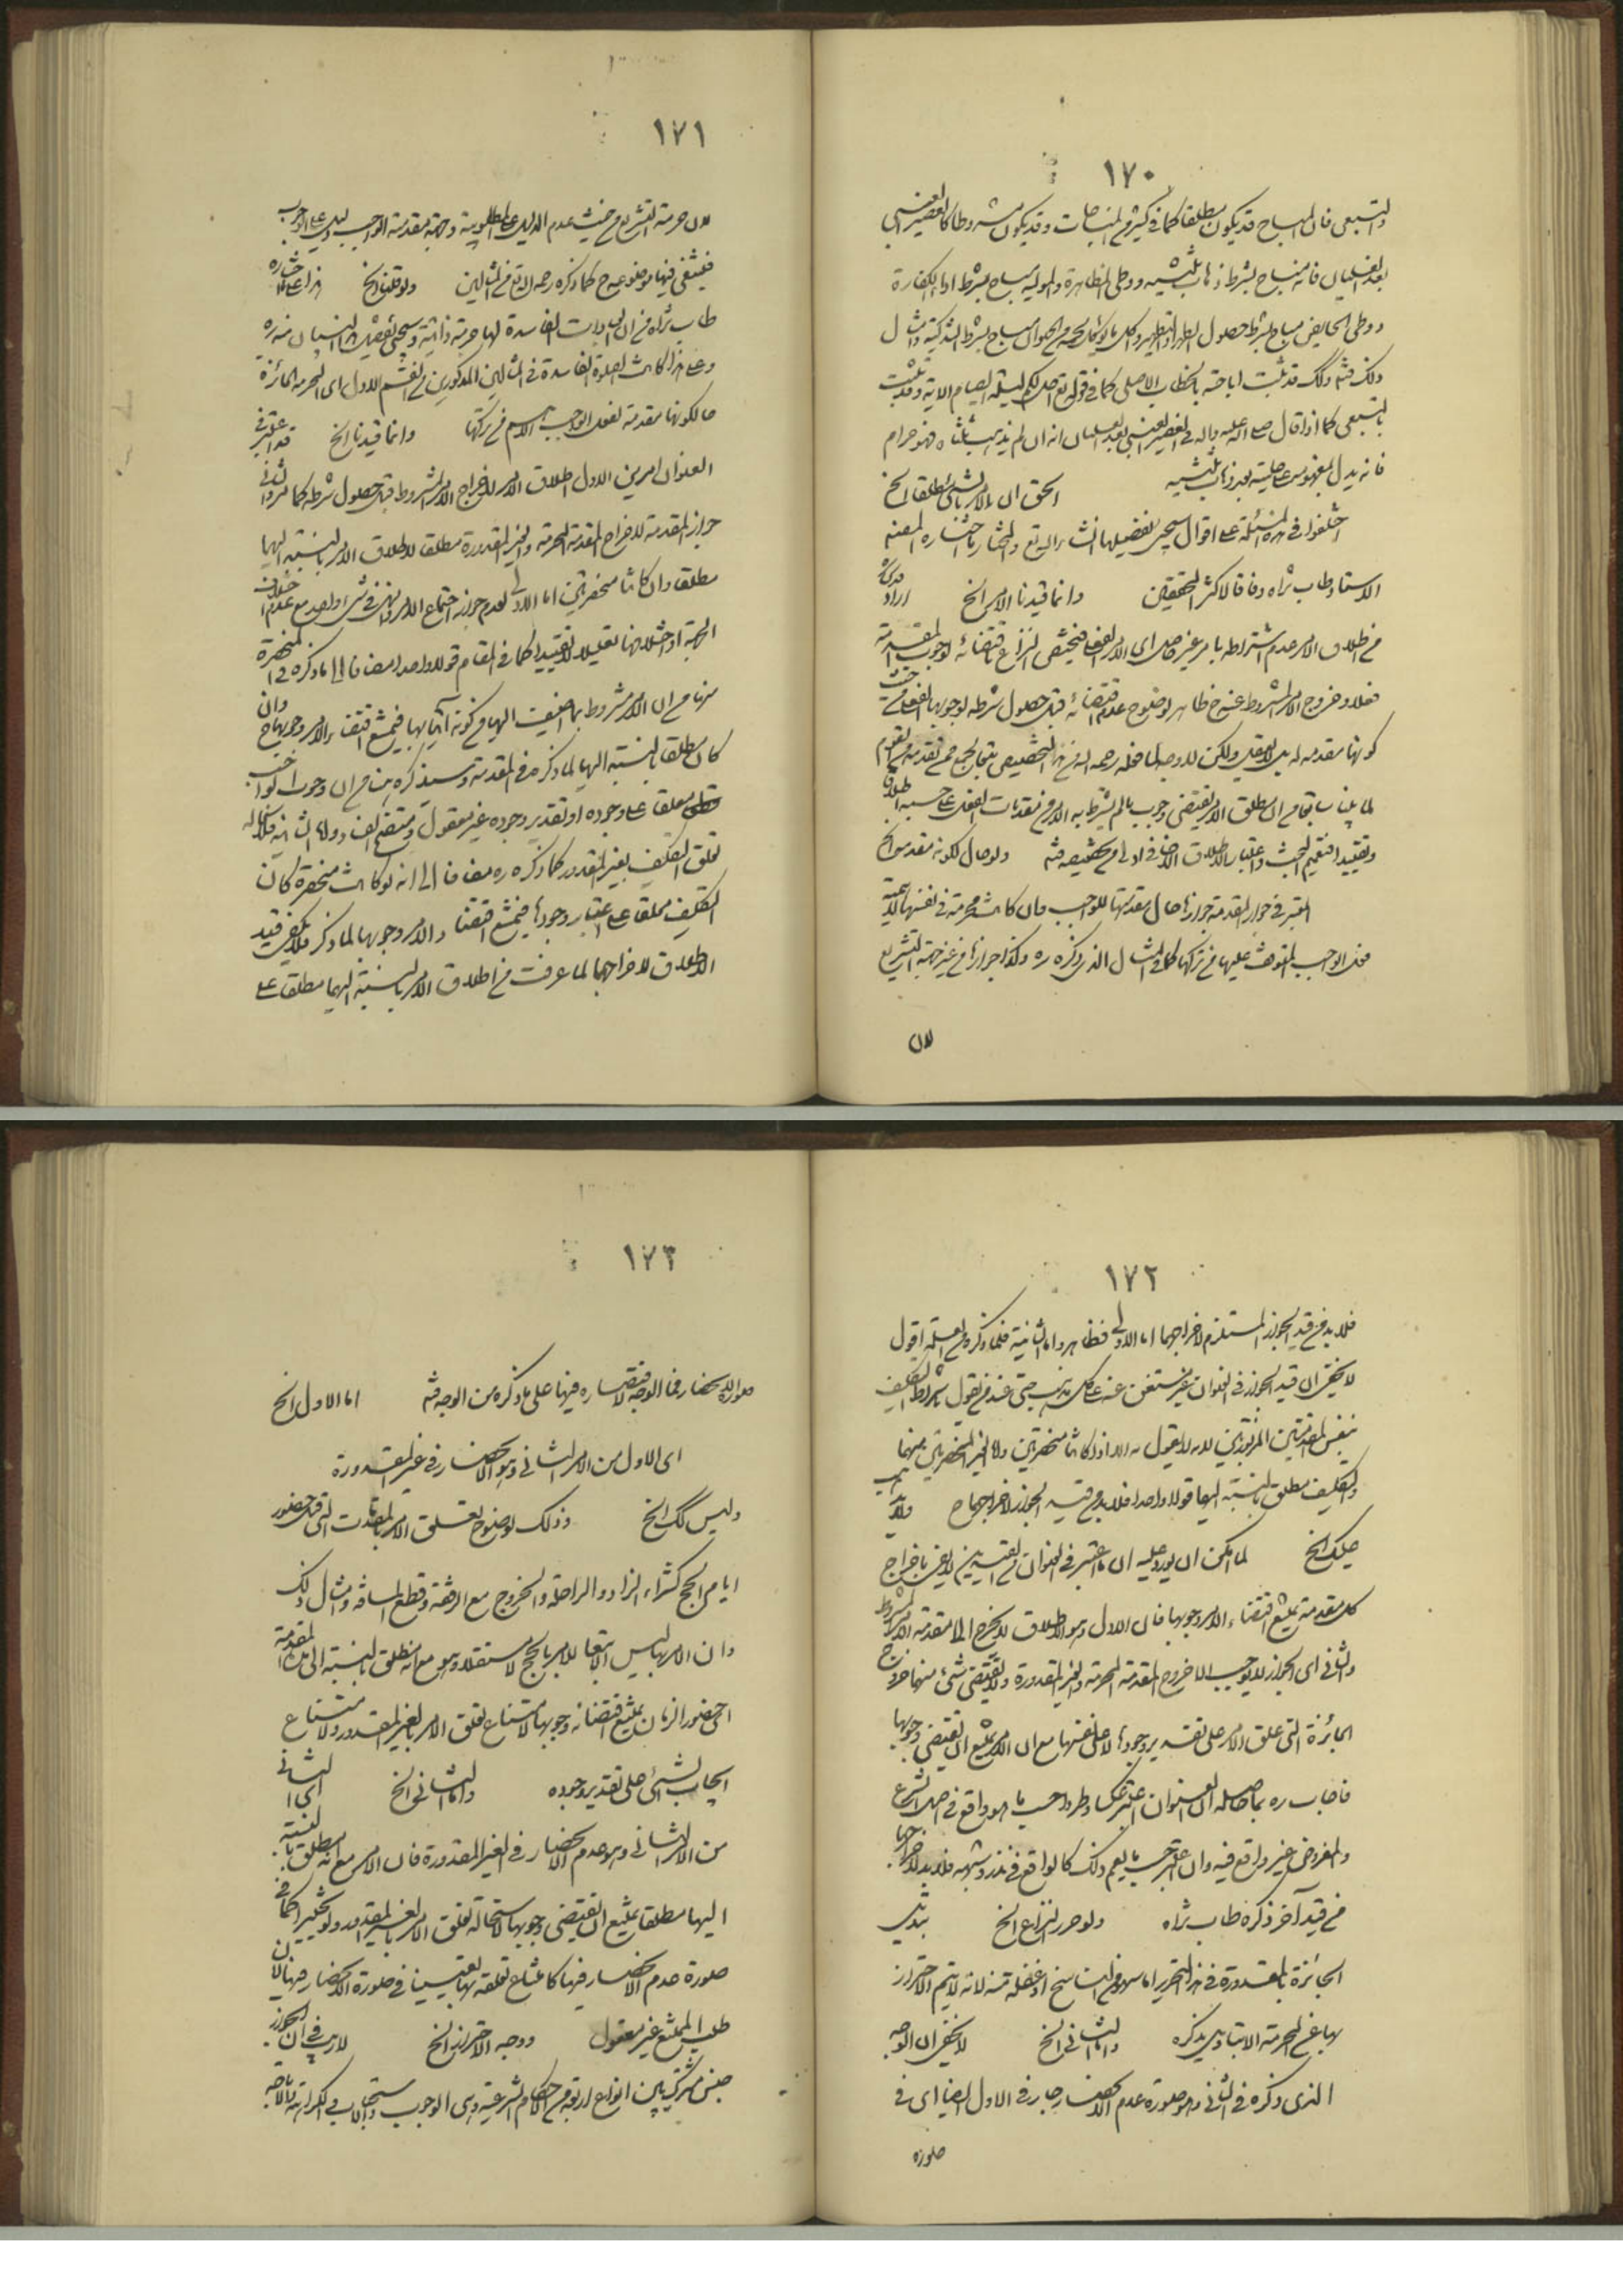 ١٧٠
والتبعى فان المباح قد يكون مطلقا كما فى كثير من المباحات وقد يكون مشروطا كالعصير العنبى
بعد الغليان فانه مباح بشرط ذهاب ثلثيه ووطى المظاهرة والمولية مباح بشرط اداء الكفارة
ووطى الحايض مباح بشرط حصول الطهر او التطهير واكل ما يؤكل لحمه من الحيوان مباح بشرط التذكية وامثال
ذلك وكك قد يثبت اباحته بالخطاب الاصلى كما فى قوله تع احل لكم ليلة الصيام الاية وقد يثبت
بالتبعى كما اذا قال صلى الله عليه واله فى العصير العنبى بعد الغليان انه ان لم يذهب ثلثاه فهو حرام
فانه يدل بمفهومه على حليته بعد ذهاب ثلثيه الحق ان الامر بالشئ مطلقا الخ
اختلفوا فى هذه المسئلة على اقوال سيجئ تفصيلها انشاء الله تع والمختار ما اختاره المصنف
الاستاد طاب ثراه وفاقا لاكثر المحققين وانما قيدنا الامر الخ اراد
من اطلاق الامر عدم اشتراطه بامر غير حاصل اى الامر الفعلى فيختص النزاع باقتضائه لوجوب المقدمة
فعلا وخروج الامر المشروط عنه ح ظاهر لوضوح عدم اقتضائه قبل حصول شرطه لوجوبها الفعلى من حيث
كونها مقدمة له بل لا يعقل ولكن لا وجه لما فعله رحمه الله من هذا التخصيص
لما بينا سابقا من ان مطلق الامر يقتضى وجوب ما لم يشترط به الامر من مقدمات الفعل على حسبه اطلاقا
وتقييدا فتعميم البحث واعتبار الاطلاق الاضافى اولى من تخصيصه ولو حال كونه مقدمة الخ
المعتبر فى جواز المقدمة جوازها حال مقدميتها للواجب وان كانت محرمة فى نفسها لاهمية
فعل الواجب المتوقف عليها من تركها كما فى المثال الذى ذكره ره وكذا جوازها من غير جهة التشريع
لان
١٧١
لان حرمة التشريع من حيث عدم الدليل على المطلوبية وجهة مقدمة الواجب دليل على الوجوب
فينتفى فيها موضوعه ح كما ذكره رحمه الله تع فى المثالين ولو قلنا الخ هذا على ما اختاره
طاب ثراه من ان العبادات الفاسدة لها حرمة ذاتية وسيجئ تفصيل البيان منه ره
وعلى هذا كانت الصلوة الفاسدة فى المثالين المذكورين من القسم الاول اى المحرمة الجائزة
حال كونها مقدمة لفعل الواجب الاهم من تركها وانما قيدنا الخ قد اعتبر فى
العنوان امرين الاول اطلاق الامر لاخراج الامر المشروط قبل حصول شرطه كما مر والثانى
جواز المقدمة لاخراج المقدمة المحرمة والغير المقدورة مطلقا لاطلاق الامر بالنسبة اليها
مطلقا وان كانتا منحصرتين اما الاولى لعدم جواز اجتماع الامر والنهى فى شئ واحد مع عدم اختلاف
الجهة او اختلافها تعليلا لا تقييدا كما فى المقام قولا واحدا مضافا الى ما ذكره فى المنحصرة
منها من ان الامر مشروط بما اضيف اليها من كونه آتيا بها فيمتنع اقتضاء الامر وجوبها ح وان
كان مطلقا بالنسبة اليها لما ذكره فى المقدمة وسيذكره هنا من ان وجوب الواجب
معلق على وجوده او تقدير وجوده غير معقول ومستهجن لغة واما الثانية فلاستحالة
تعلق التكليف بغير المقدور كما ذكره ره مضافا الى انه لو كانت منحصرة كان
التكليف معلقا على اعتبار وجودها فيمتنع اقتضاء الامر وجوبها لما ذكر فلا يكفى قيد
الاطلاق لاخراجهما لما عرفت من اطلاق الامر بالنسبة اليهما مطلقا على
١٧٢
فلا بد من قيد الجواز المستلزم لاخراجهما اما الاولى فظاهر واما الثانية فلما ذكره من العلة اقول
لا يخفى ان قيد الجواز فى العنوان غير مستغنى عنه على كل مذهب حتى عند من يقول باشتراط التكليف
بنفس المقدمتين المزبورتين لانه لا يقول به الا اذا كانتا منحصرتين واما الغير المنحصرتين منهما
والتكليف مطلق بالنسبة اليها قولا واحدا فلا بد من قيد الجواز لاخراجهما ح ولا يذهب
عليك الخ لما امكن ان يورد عليه ان ما اعتبر فى العنوان من القيدين لا يفى باخراج
كل مقدمة يمتنع اقتضاء الامر وجوبها فان الاول وهو الاطلاق لا يخرج الا مقدمة الامر المشروط
والثانى اى الجواز لا يوجب الا خروج المقدمة المحرمة والغير المقدورة ولا يقتضى شئ منهما خروج
الجائزة التى علق الامر على تقدير وجودها لا على نفسها مع ان الامر يمتنع ان يقتضى وجوبها
فاجاب ره بما حاصله ان العنوان اعتبر عكسا وطردا حسب ما هو واقع فى اصل الشرع
والمفروض غير واقع فيه وان اعتبر حسب ما يعم ذلك كالواقع فى نذر وشبهه فلا بد لاخراجها
من قيد آخر ذكره طاب ثراه ولو حرر النزاع الخ تبديل
الجائزة بالمقدورة فى هذا التحرير اما سهو من الناسخ او غفلة منه لانه لا يتم الاحتراز
بها عن المحرمة الا بتاويل يذكره واما الثانى الخ لا يخفى ان الوجه
الذى ذكره فى الثانى وهو صورة عدم الانحصار جار فى الاول ايضا اى فى
صورة
١٧٣
صورة الانحصار فما الوجه لاقتصاره فيها على ما ذكره من الوجه اما الاول الخ
اى الاول من الامر الثانى وهو الانحصار فى غير المقدورة
وليس كك الخ وذلك لوضوح تعلق الامر بالمقدمات التى قبل حضور
ايام الحج كشراء الزاد والراحلة والخروج مع الرفقة وقطع المسافة وامثال ذلك
وان الامر بها ليس الا تبعا للامر بالحج لا مستقلا وهو مع انه مطلق بالنسبة الى تلك المقدمة
اى حضور الزمان يمتنع اقتضائه وجوبها لامتناع تعلق الامر بالغير المقدور ولامتناع
ايجاب الشئ على تقدير وجوده واما الثانى الخ اى الثانى
من الامر الثانى وهو عدم الانحصار فى الغير المقدورة فان الامر مع انه مطلق بالنسبة
اليها مطلقا يمتنع ان يقتضى وجوبها لاستحالة تعلق الامر بالغير المقدور ولو تخييرا كما فى
صورة عدم الانحصار فيها كامتناع تعلقه بها تعيينا فى صورة الانحصار فيها لان
طلب الممتنع غير معقول ووجه الاحتراز الخ لا ريب فى ان الجواز
جنس مشترك بين انواع اربعة من الاحكام الشرعية وهى الوجوب والاستحباب والكراهة والاباحة